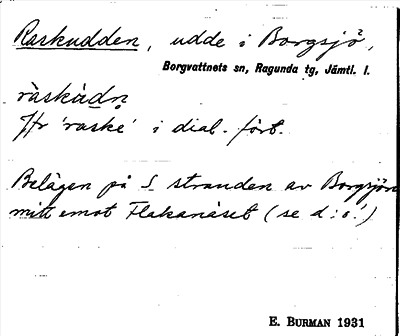 Raskudden, udde i Borgsjö,
Borgvattnets sn, Ragunda tg, Jämtl. l.
ràskùdn̥
Jfr 'raske' i dial. fört.
Belägen på S stranden av Borgsjön
mitt emot Flakanäset (se d:o!)
E. BURMAN 1931